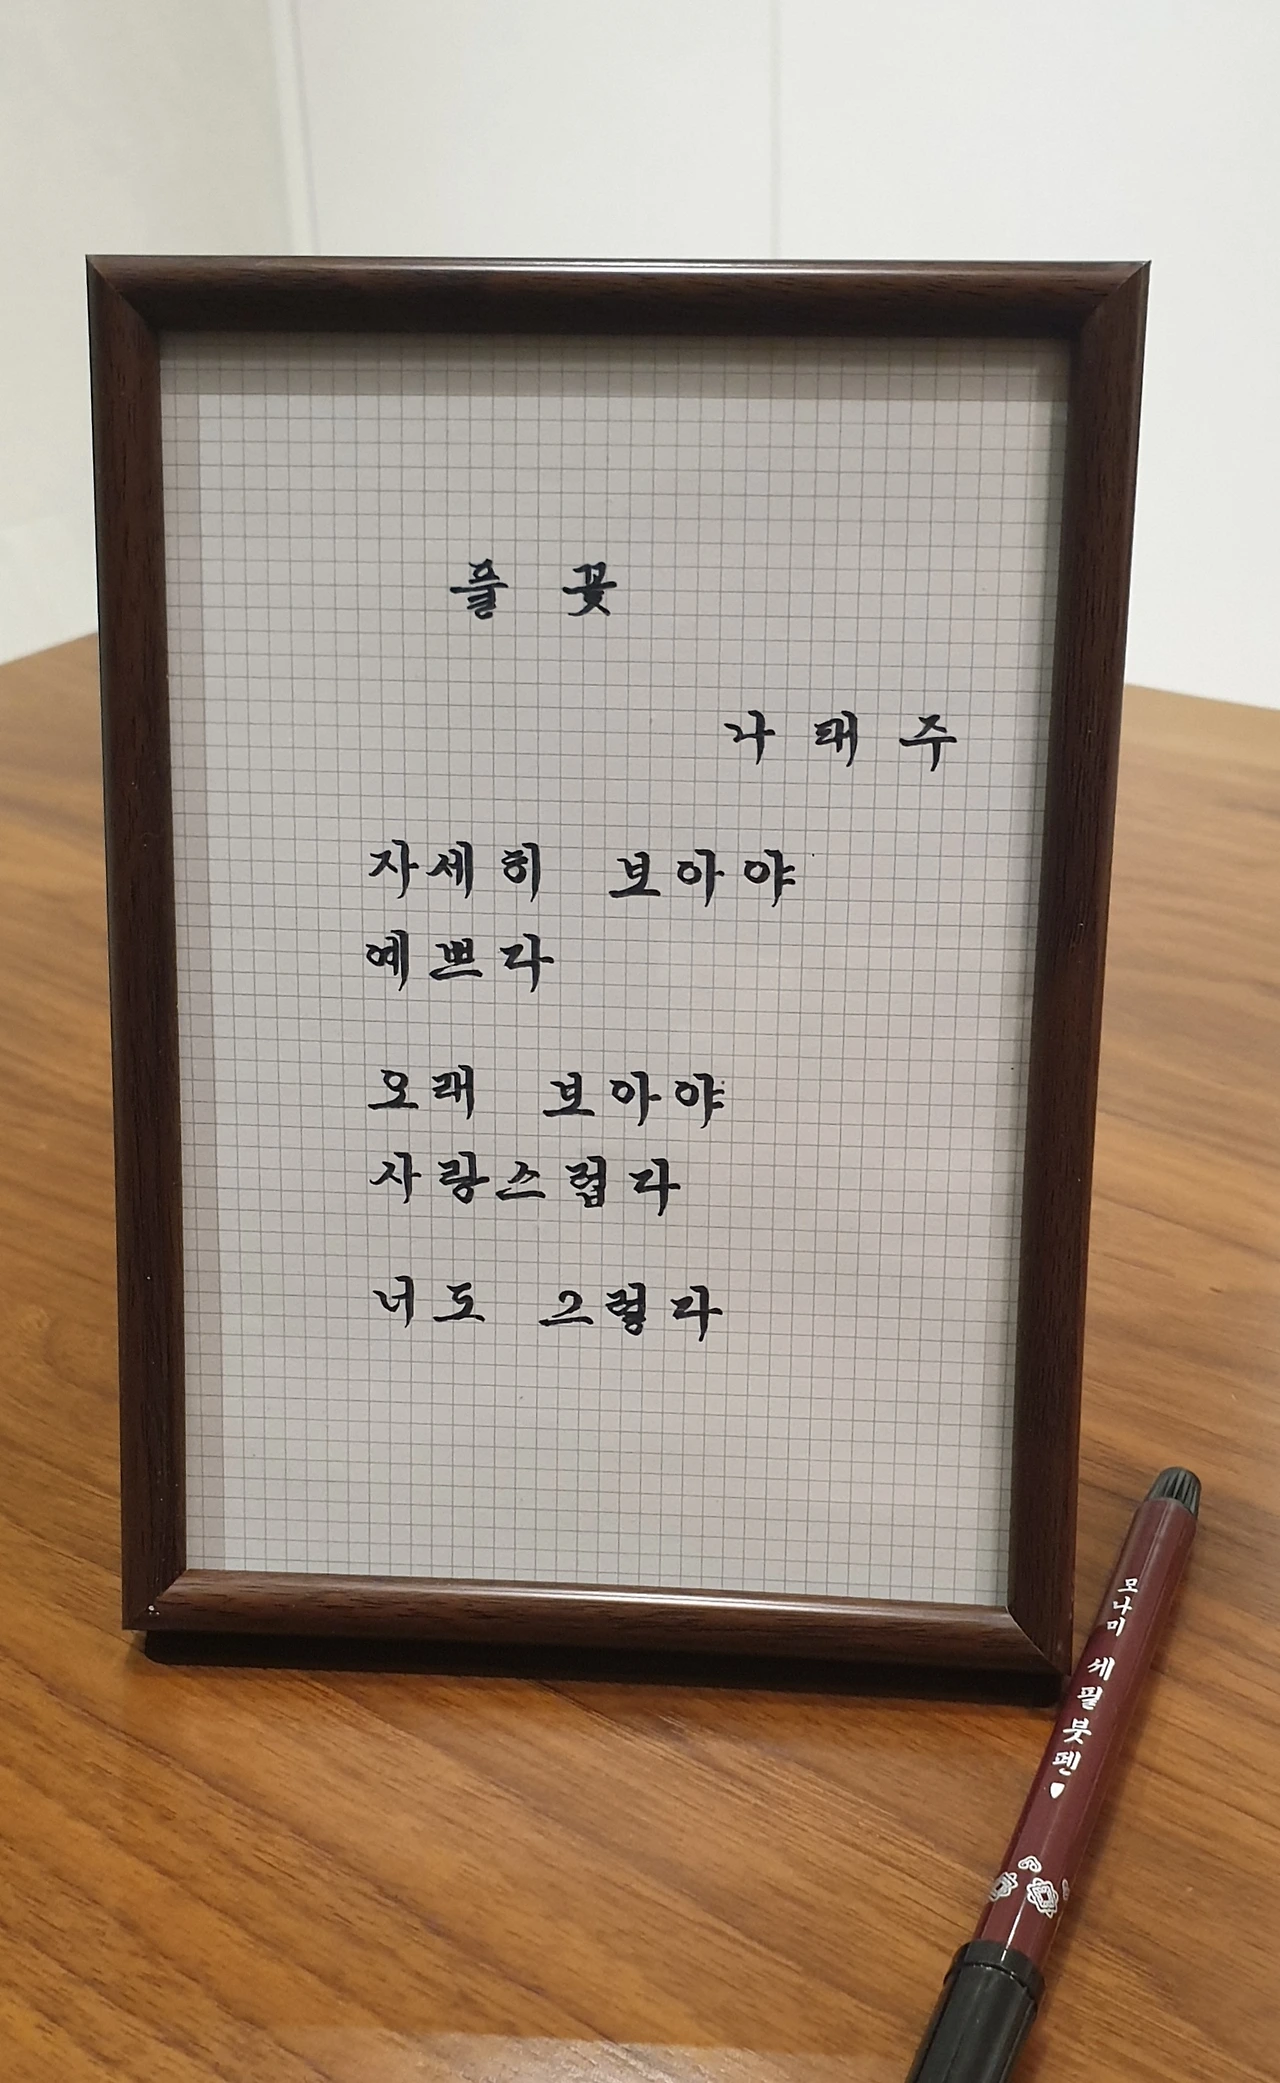 풀 꽃
나 태 주
자세히 보아야
예쁘다
오래 보아야
사랑스럽다
너도 그렇다
모나미 세필붓펜